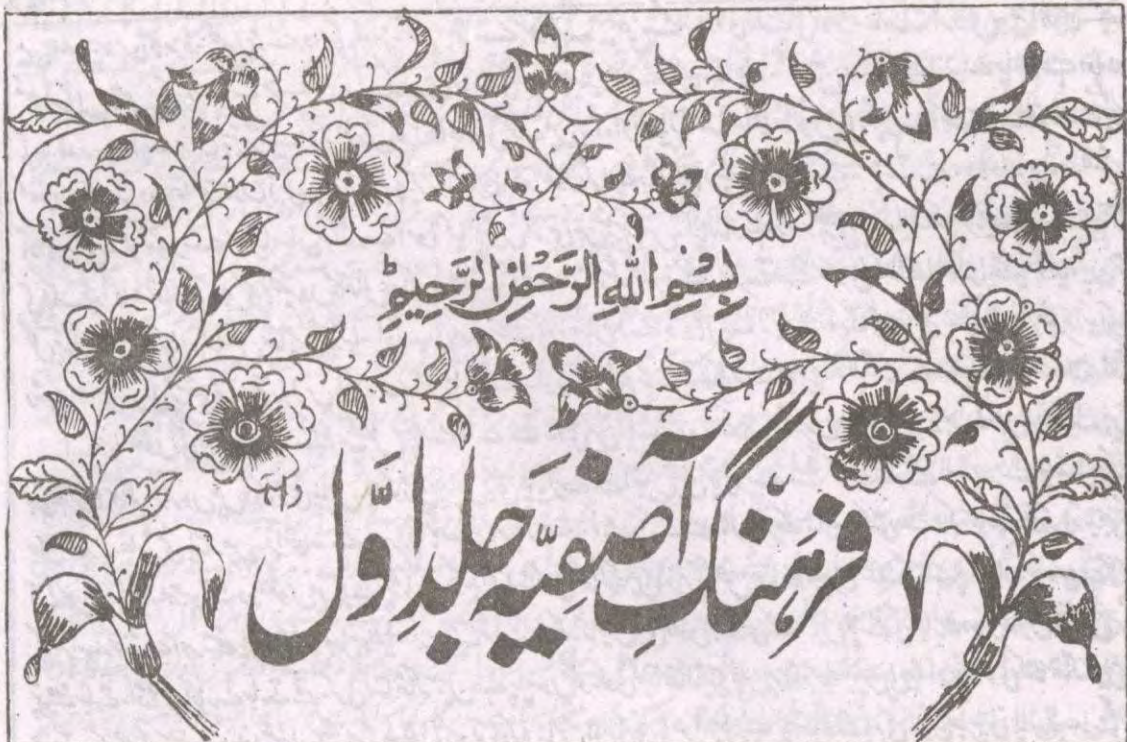 بِسْمِ اللهِ الرَّحْمٰنِ الرَّحِيْمِ
فرہنگِ آصفیّہ جلدِ اوَّل (۱)